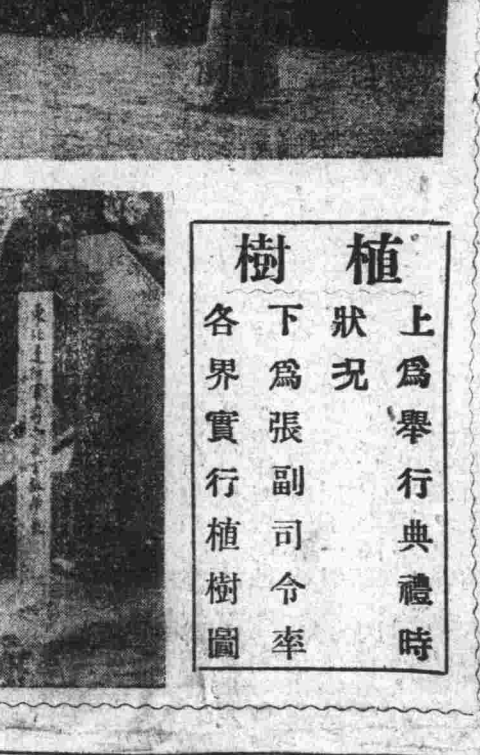 植樹
上爲舉行典禮時
狀况
下爲張副司令率
各界實行植樹圖